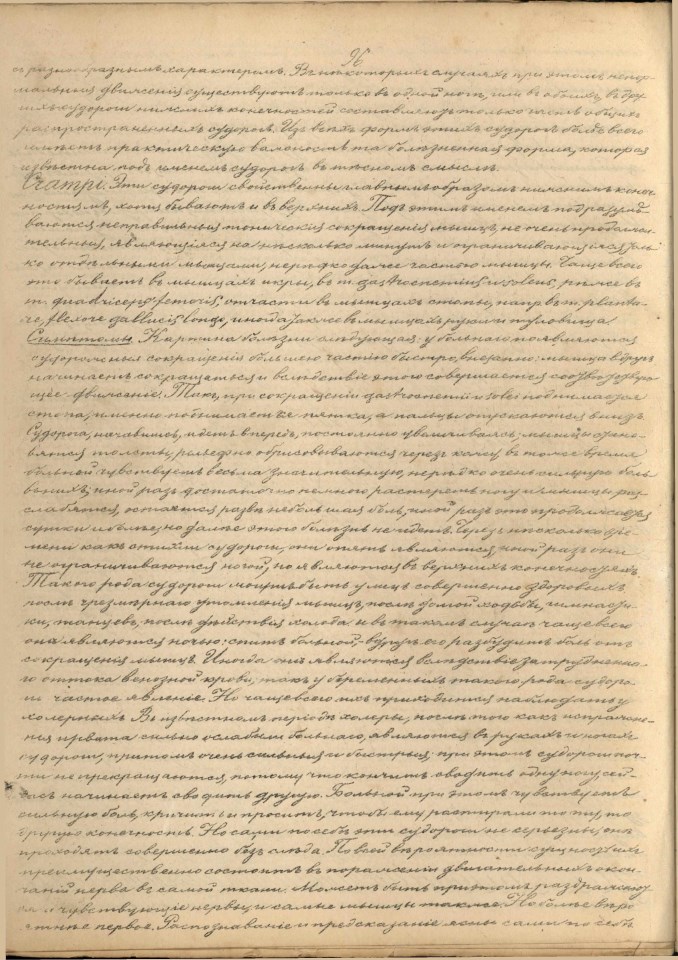 96
съ разнообразнымъ характеромъ. Въ нѣкоторыхъ случаяхъ при этомъ ненор-
мальныя движенія существуютъ только въ одной ногѣ, или въ обѣихъ, въ дру-
гихъ судороги нижнихъ конечностей составляютъ только часть общихъ
распространенныхъ судорогъ. Изъ всѣхъ формъ этихъ судорогъ болѣе всего
имѣетъ практическую важность та болѣзненная форма, которая
извѣстна подъ именемъ судорогъ въ тѣсномъ смыслѣ.
Crampi. Эти судороги свойственны главнымъ образомъ нижнимъ конеч-
ностямъ, хотя бываютъ и въ верхнихъ. Подъ этимъ именемъ подразумѣ-
ваются неправильныя тоническія сокращенія мышцъ, не очень продолжи-
тельныя, являющіяся на нѣсколько минутъ и ограничивающіяся толь-
ко отдѣльными мышцами, нерѣдко даже частью мышцы. Чаще всего
это бываетъ въ мышцахъ икры, въ m. gastrocnemius и soleus, рѣже въ
m. quadriceps femoris, отчасти въ мышцахъ стопы, напр. въ m. planta-
re, flexore hallucis longi, иногда также въ мышцахъ руки и туловища.
Симптомы. Картина болѣзни слѣдующая: у больного появляются
судорожныя сокращенія большею частію быстро, внезапно: мышца вдругъ
начинаетъ сокращаться и вслѣдствіе этого совершается соотвѣтствую-
щее движеніе. Такъ, при сокращеніи gastrocnemii и solei поднимается
стопа, именно поднимается пятка, а пальцы опускаются внизъ.
Судорога, начавшись, идетъ впередъ, постоянно увеличиваясь; мышцы стано-
вятся толсты, рельефно обрисовываются черезъ кожу, въ то же время
больной чувствуетъ весьма значительную, нерѣдко очень сильную боль
въ нихъ; иной разъ достаточно немного растереть ногу и мышцы раз-
слабятся, останется развѣ небольшая боль, иной разъ это продолжается
сутки и болѣе, но далѣе этого болѣзнь не идетъ. Черезъ нѣсколько вре-
мени какъ стихли судороги, они опять являются, иной разъ они
не ограничиваются ногой, но являются въ верхнихъ конечностяхъ.
Такого рода судороги могутъ быть у лицъ совершенно здоровыхъ
послѣ чрезмѣрнаго утомленія мышцъ, послѣ долгой ходьбы, гимнасти-
ки, танцевъ, послѣ дѣйствія холода и въ такомъ случаѣ чаще всего
она являются ночью: спитъ больной, — вдругъ его разбудитъ боль отъ
сокращенія мышцъ. Иногда они являются вслѣдствіе затрудненна-
го оттока венозной крови; такъ у беременныхъ такого рода судоро-
ги частое явленіе. Но чаще всего ихъ приходится наблюдать у
холерныхъ. Въ извѣстномъ періодѣ холеры, послѣ того какъ испражне-
нія и рвота сильно ослабили больнаго, являются въ рукахъ и ногахъ
судороги, притомъ очень сильныя и быстрыя; при этомъ судороги поч-
ти не прекращаются, потому что кончитъ сводить одну ногу, сей-
часъ начинаетъ сводить другую. Больной при этомъ чувствуетъ
сильную боль, кричитъ и проситъ, чтобы ему растирали то ту, то
другую конечность. Но сами по себѣ эти судороги не серьезны, они
проходятъ совершенно безъ слѣда. По всей вѣроятности сущность ихъ
преимущественно состоитъ въ пораженіи двигательныхъ окон-
чаній нерва въ самой ткани. Можетъ быть при томъ раздражают-
ся и чувствующіе нервы и самые мышцы также. Но болѣе вѣро-
ятнѣе первое. Распознаваніе и предсказаніе ясны сами по себѣ